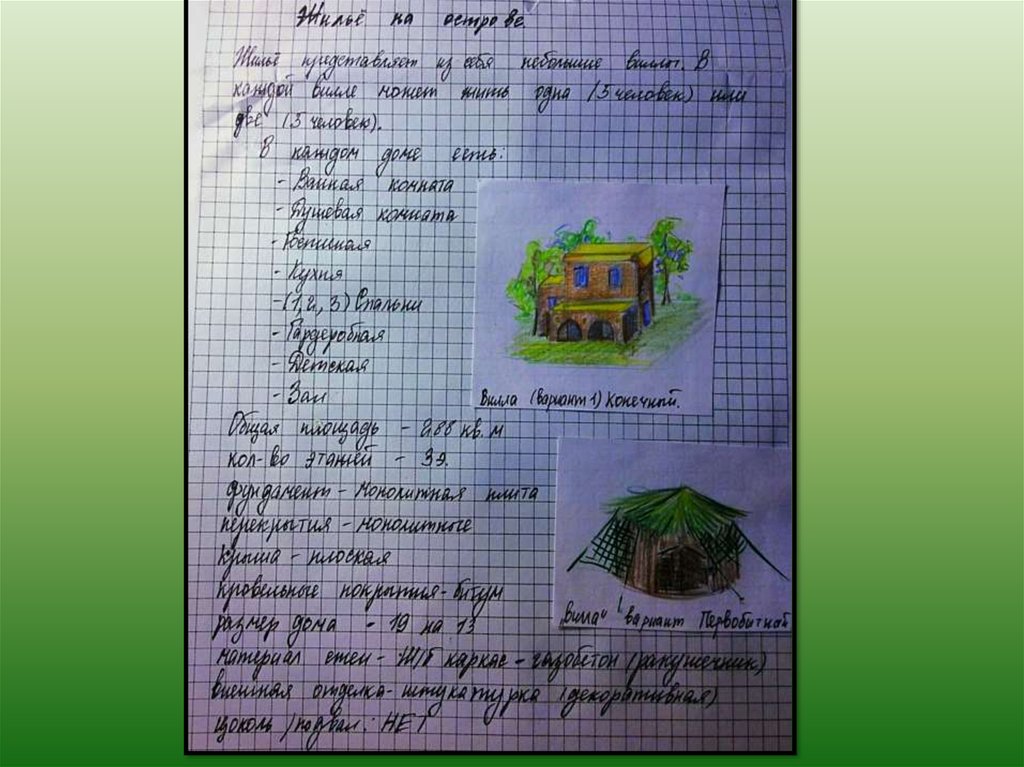 Жильё на острове.
Жильё представляет из себя небольшие виллы. В
каждой вилле может жить одна (5 человек) или
две (5 человек).
В каждом доме есть:
- Ванная комната
- Душевая комната
- Гостиная
- Кухня
- (1, 2, 3) Спальни
- Гардеробная
- Детская
- Зал
Вилла (вариант 1) Конечный.
Общая площадь - 288 кв. м
кол-во этажей - 3э.
фундамент - монолитная плита
перекрытия - монолитные
крыша - плоская
кровельные покрытия - битум
Вилла" вариант Первобитной
размер дома - 19 на 13
материал стен - Ж/б каркас - газобетон (ракушечник)
внешная отделка - штукатурка (декоративная)
цоколь /подвал: НЕТ